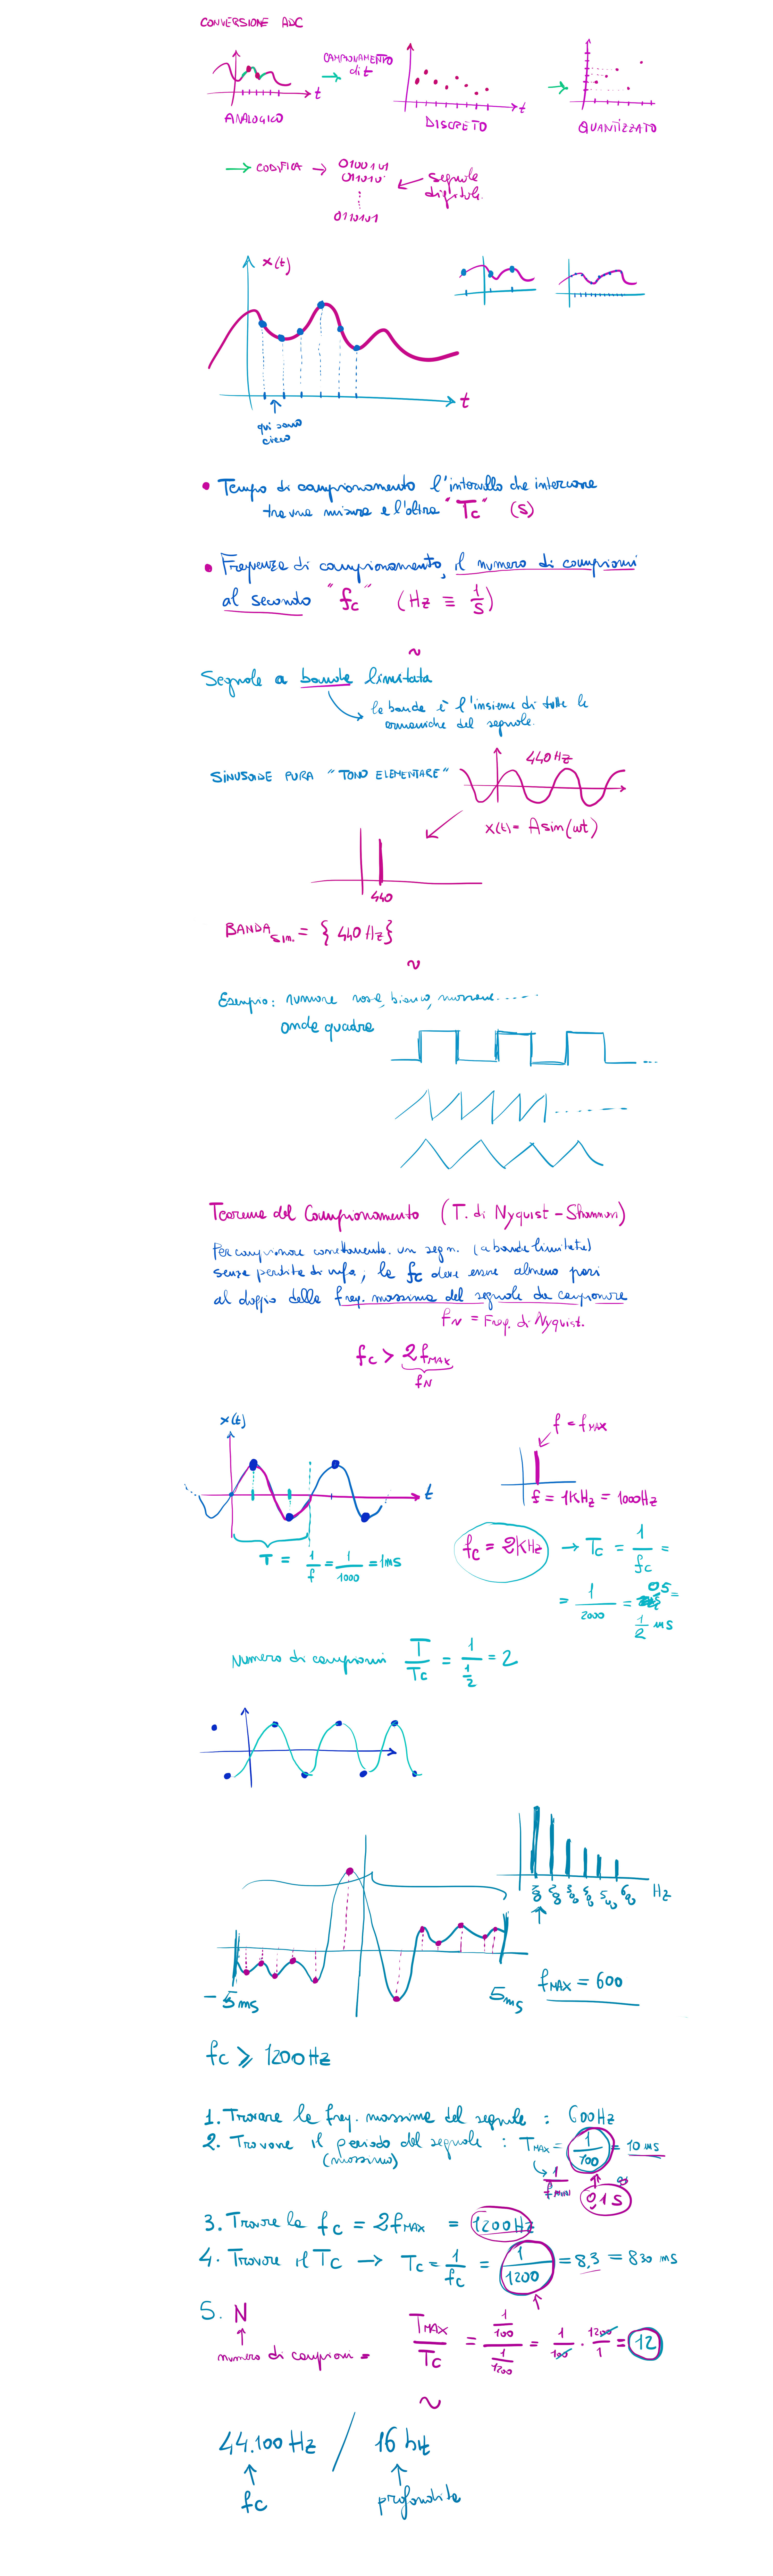 CONVERSIONE ADC
CAMPIONAMENTO
di t
t
ANALOGICO
t
DISCRETO
QUANTIZZATO
CODIFICA
0100101
011010
0110101
segnale
digitale.
x(t)
t
qui sono
cieco
• Tempo di campionamento l'intervallo che intercorre
tra una misura e l'altra "Tc" (s)
• Frequenza di campionamento, il numero di campioni
al secondo "fc" (Hz ≡ 1/s)
~
Segnale a banda limitata
la banda è l'insieme di tutte le
armoniche del segnale.
SINUSOIDE PURA "TONO ELEMENTARE"
440 Hz
x(t) = A sin(ωt)
440
BANDA sin. = { 440 Hz }
~
Esempio: rumore rosa, bianco, marrone.....
onda quadra
Teorema del Campionamento (T. di Nyquist - Shannon)
Per campionare correttamente un segn. (a banda limitata)
senza perdita di info, la fc deve essere almeno pari
al doppio della freq. massima del segnale da campionare
fN = Freq. di Nyquist.
fc > 2fMAX
fN
x(t)
t
T = 1/f = 1/1000 = 1ms
f = fMAX
f = 1KHz = 1000Hz
fc = 2KHz → Tc = 1/fc =
= 1/2000 = 05 =
1/2 ms
Numero di campioni T/Tc = 1/(1/2) = 2
Hz
-5ms
5ms
fMAX = 600
fc ⩾ 1200 Hz
1. Trovare la freq. massima del segnale : 600Hz
2. Trovare il periodo del segnale : TMAX = 1/100 = 10 ms
(massimo)
1/fMIN
0,1 s
3. Trovare la fc = 2fMAX = 1200Hz
4. Trovare il Tc → Tc = 1/fc = 1/1200 = 8,3 = 830 ms
5. N
numero di campioni =
TMAX/Tc = (1/100)/(1/1200) = 1/100 · 1200/1 = 12
~
44.100 Hz / 16 bit
fc
profondità